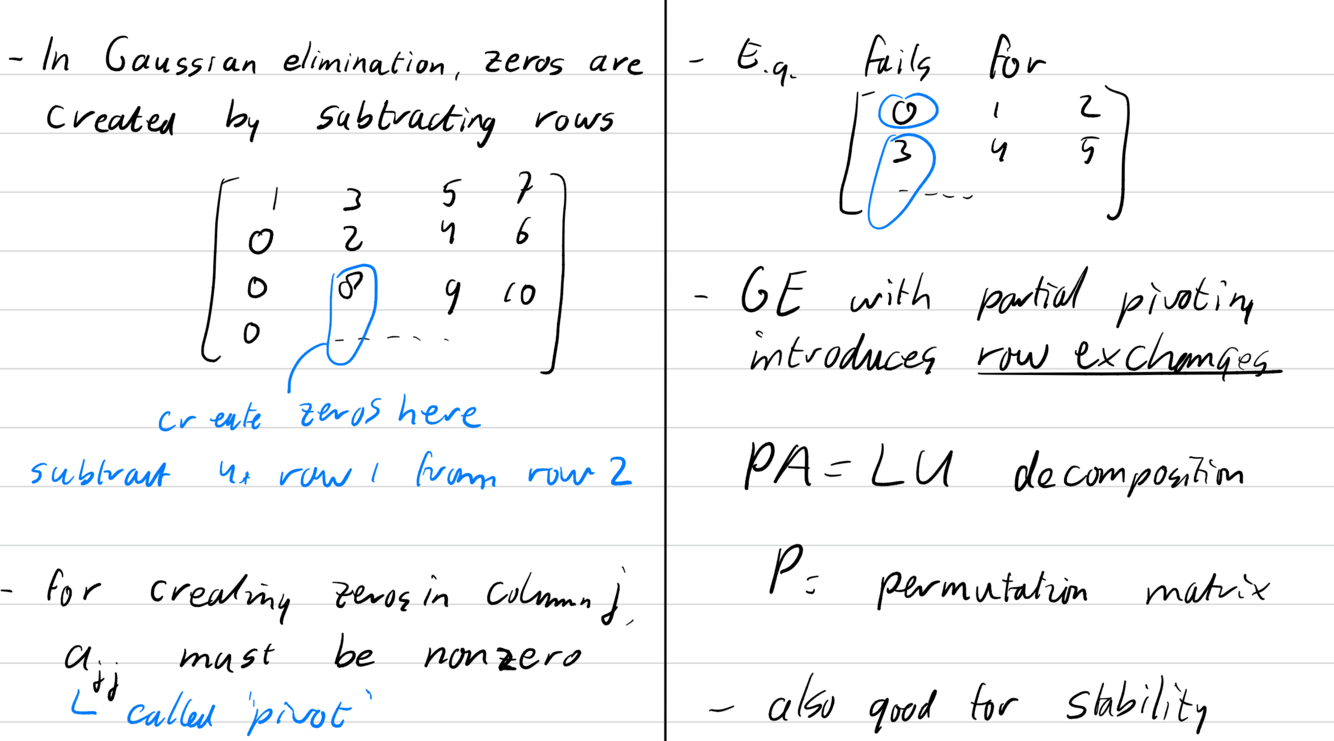 - In Gaussian elimination, zeros are
created by subtracting rows
1 3 5 7
0 2 4 6
0 8 9 10
0 - - - - -
create zeros here
subtract 4x row 1 from row 2
- for creating zeros in column j,
a_jj must be nonzero
called 'pivot'
- E.g. fails for
0 1 2
3 4 5
- - - - -
- GE with partial pivoting
introduces row exchanges
PA = LU decomposition
P = permutation matrix
- also good for stability